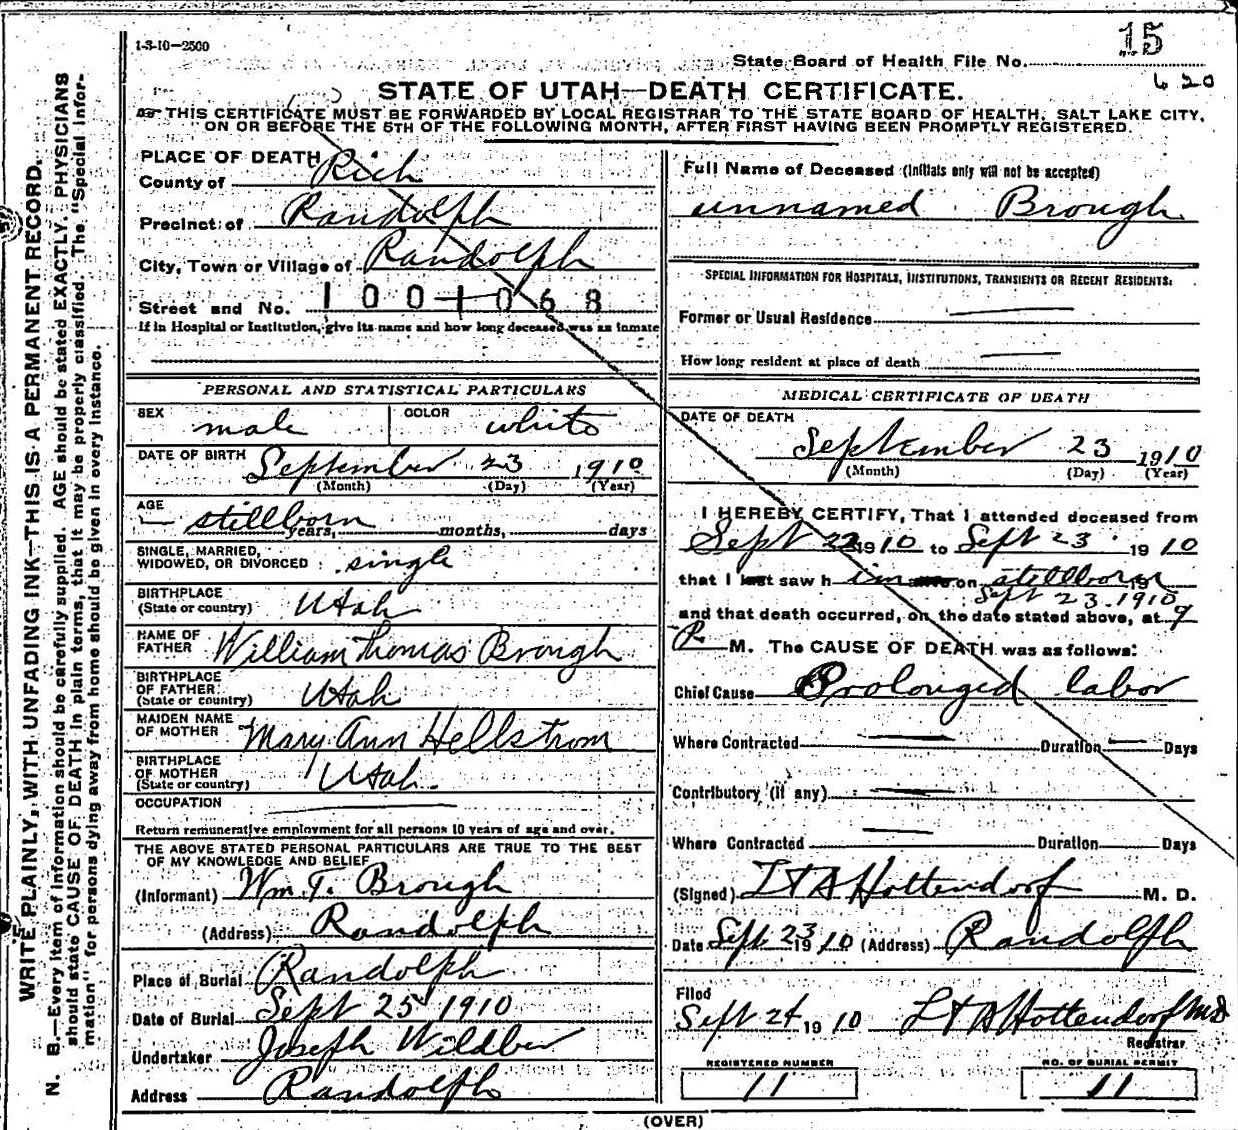 1-3-10—2500
15
State Board of Health File No.
620
STATE OF UTAH—DEATH CERTIFICATE.
THIS CERTIFICATE MUST BE FORWARDED BY LOCAL REGISTRAR TO THE STATE BOARD OF HEALTH, SALT LAKE CITY,
ON OR BEFORE THE 5TH OF THE FOLLOWING MONTH, AFTER FIRST HAVING BEEN PROMPTLY REGISTERED.
PLACE OF DEATH
County of Rich
Precinct of Randolph
City, Town or Village of Randolph
Street and No. 1001068
If in Hospital or Institution, give its name and how long deceased was an inmate
PERSONAL AND STATISTICAL PARTICULARS
SEX male COLOR white
DATE OF BIRTH September 23 1910
(Month) (Day) (Year)
AGE
— stillborn years, months, days
SINGLE, MARRIED,
WIDOWED, OR DIVORCED single
BIRTHPLACE
(State or country) Utah
NAME OF
FATHER William Thomas Brough
BIRTHPLACE
OF FATHER
(State or country) Utah
MAIDEN NAME
OF MOTHER Mary Ann Hellstrom
BIRTHPLACE
OF MOTHER
(State or country) Utah
OCCUPATION
Return remunerative employment for all persons 10 years of age and over.
THE ABOVE STATED PERSONAL PARTICULARS ARE TRUE TO THE BEST
OF MY KNOWLEDGE AND BELIEF
(Informant) Wm. T. Brough
(Address) Randolph
Place of Burial Randolph
Date of Burial Sept 25 1910
Undertaker Joseph
Address Randolph
Full Name of Deceased (Initials only will not be accepted)
unnamed Brough
SPECIAL INFORMATION FOR HOSPITALS, INSTITUTIONS, TRANSIENTS OR RECENT RESIDENTS:
Former or Usual Residence —
How long resident at place of death —
MEDICAL CERTIFICATE OF DEATH
DATE OF DEATH
September 23 1910
(Month) (Day) (Year)
I HEREBY CERTIFY, That I attended deceased from
Sept 22 1910 to Sept 23 1910
that I last saw him on stillborn 19
Sept 23 1910
and that death occurred, on the date stated above, at 9
P. M. The CAUSE OF DEATH was as follows:
Chief Cause Prolonged labor
Where Contracted — Duration — Days
Contributory (if any) —
Where Contracted — Duration Days
(Signed) Hottendorf M. D.
Date Sept 23 1910 (Address) Randolph
Filed
Sept 24 1910 Hottendorf MD
Registrar
REGISTERED NUMBER
11
NO. OF BURIAL PERMIT
11
(OVER)
WRITE PLAINLY, WITH UNFADING INK—THIS IS A PERMANENT RECORD.
N. B.—Every item of information should be carefully supplied. AGE should be stated EXACTLY. PHYSICIANS
should state CAUSE OF DEATH in plain terms, that it may be properly classified. The "Special Infor-
mation" for persons dying away from home should be given in every instance.